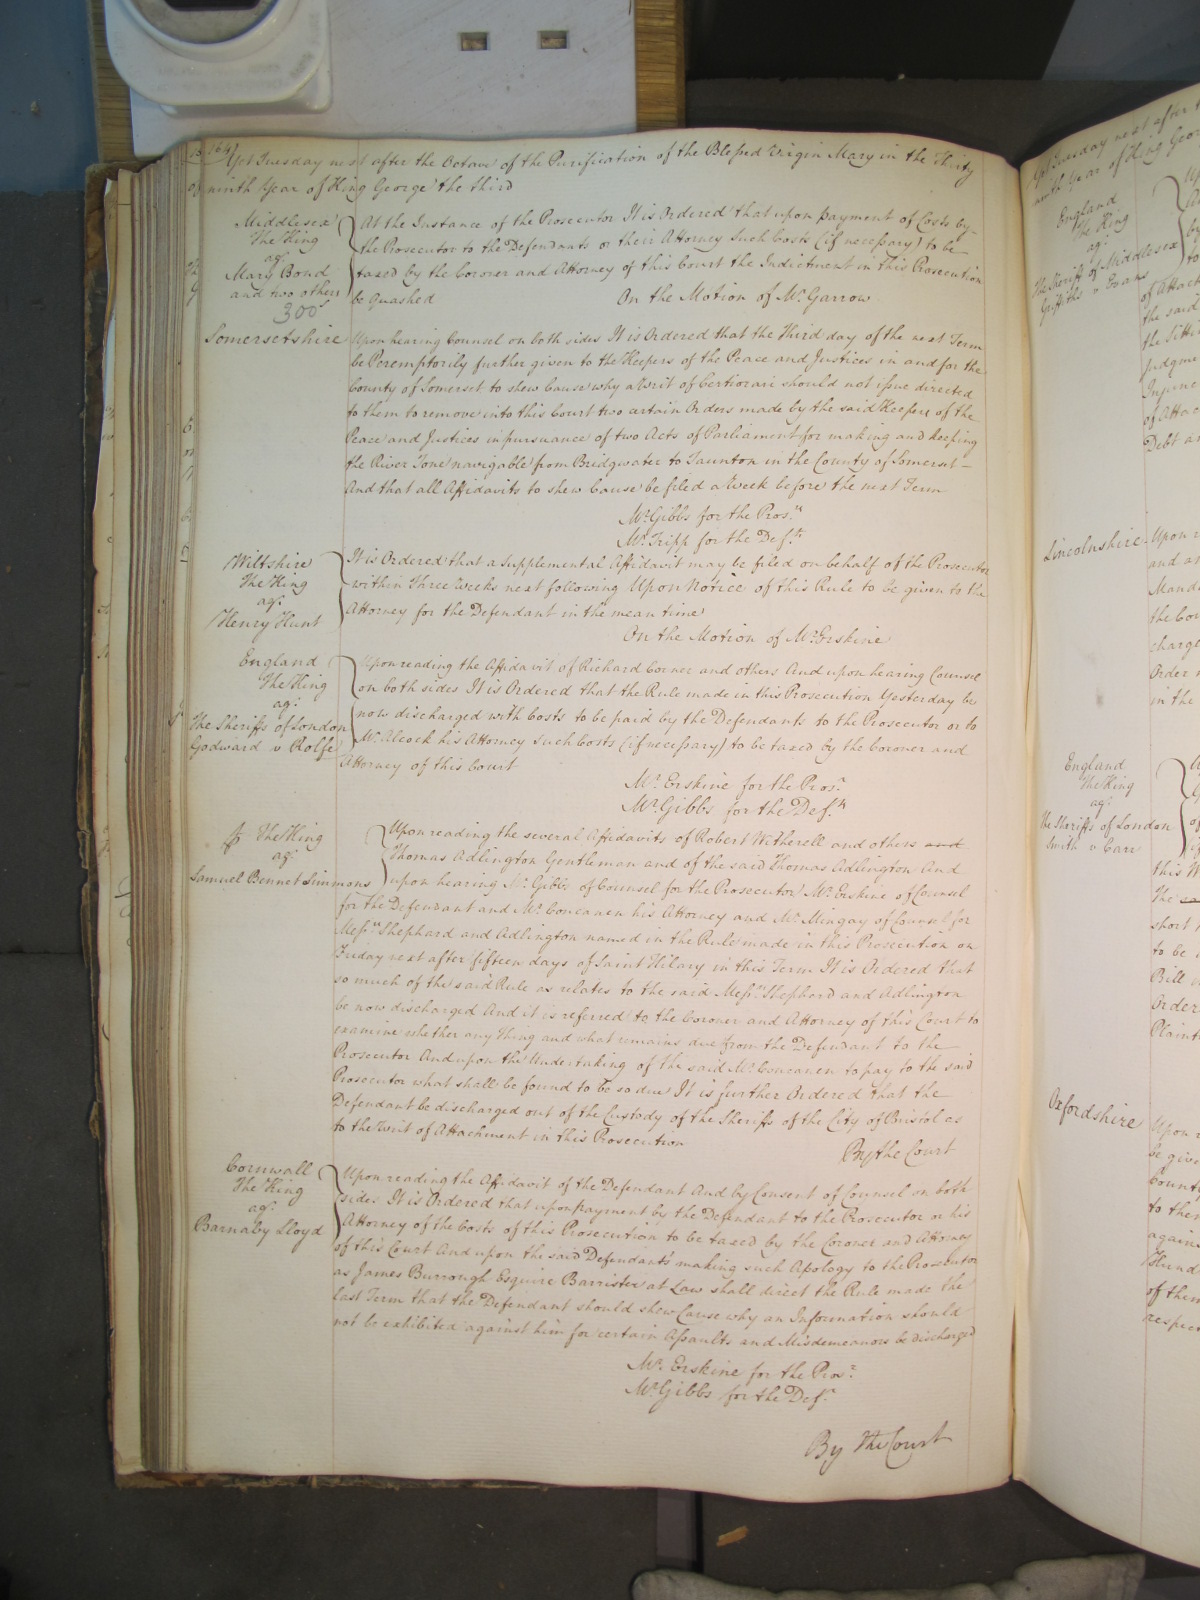 Yet Tuesday next after the Octave of the Purification of the Blessed Virgin Mary in the Thirty
ninth Year of King George the third
Middlesex
The King
agt
Mary Bond
and two others
300
At the Instance of the Prosecutor It is Ordered that upon payment of Costs by
the Prosecutor to the Defendants or their Attorney Such Costs (if necessary) to be
taxed by the Coroner and Attorney of this Court the Indictment in this Prosecution
be Quashed
On the Motion of Mr Garrow
Somersetshire
Upon hearing Counsel on both sides It is Ordered that the Third day of the next Term
be Peremptorily further given to the Keepers of the Peace and Justices in and for the
County of Somerset to shew Cause why a Writ of Certiorari should not issue directed
to them to remove into this Court two certain Orders made by the said Keepers of the
Peace and Justices in pursuance of two Acts of Parliament for making and keeping
the River Tone navigable from Bridgwater to Taunton in the County of Somerset –
And that all Affidavits to shew Cause be filed a Week before the next Term
Mr Gibbs for the Prosr
Mr Tripp for the Deft
Wiltshire
The King
agt
Henry Hunt
It is Ordered that a Supplemental Affidavit may be filed on behalf of the Prosecutor
within Three Weeks next following Upon Notice of this Rule to be given to the
Attorney for the Defendant in the mean time
On the Motion of Mr Erskine
England
The King
agt
The Sheriffs of London
Godward v Rolfe
Upon reading the Affidavit of Richard Corner and others And upon hearing Counsel
on both sides It is Ordered that the Rule made in this Prosecution Yesterday be
now discharged with Costs to be paid by the Defendants to the Prosecutor or to
Mr Alcock his Attorney such Costs (if necessary) to be taxed by the Coroner and
Attorney of this Court
Mr Erskine for the Prosr
Mr Gibbs for the Defts
The King
agt
Samuel Bennet Simmons
Upon reading the several Affidavits of Robert Witherell and others and
Thomas Adlington Gentleman and of the said Thomas Adlington And
upon hearing Mr Gibbs of Counsel for the Prosecutor Mr Erskine of Counsel
for the Defendant and Mr Concanen his Attorney and Mr Mingay of Counsel for
Messrs Shephard and Adlington named in the Rule made in this Prosecution on
Friday next after fifteen days of Saint Hilary in this Term It is Ordered that
so much of the said Rule as relates to the said Messrs Shephard and Adlington
be now discharged And it is referred to the Coroner and Attorney of this Court to
examine whether any thing and what remains due from the Defendant to the
Prosecutor And upon the Undertaking of the said Mr Concanen to pay to the said
Prosecutor what shall be found to be so due It is further Ordered that the
Defendant be discharged out of the Custody of the Sheriffs of the City of Bristol as
to the Writ of Attachment in this Prosecution
By the Court
Cornwall
The King
agt
Barnaby Lloyd
Upon reading the Affidavit of the Defendant And by Consent of Counsel on both
sides It is Ordered that upon payment by the Defendant to the Prosecutor or his
Attorney of the Costs of this Prosecution to be taxed by the Coroner and Attorney
of this Court And upon the said Defendants making such Apology to the Prosecutor
as James Burrough Esquire Barrister at Law shall direct the Rule made the
last Term that the Defendant should shew Cause why an Information should
not be exhibited against him for certain Assaults and Misdemeanors be discharged
Mr Erskine for the Prosr
Mr Gibbs for the Deft
By the Court
Yet Tuesday next after
ninth Year of King Geo
England
The King
agt
The Sheriff of Middlesex
Griffiths v Evans
of Attach
the said
the Sitti
Judgme
of Attac
Debt a
Lincolnshire
Upon
and
Manda
the Cou
charge
Order
in the
England
The King
agt
The Sheriffs of London
Smith v Carr
this W
The
short
to be
Bill
Order
Plaint
Oxfordshire
Upon
be give
County
to them
again
Hund
of them
respec